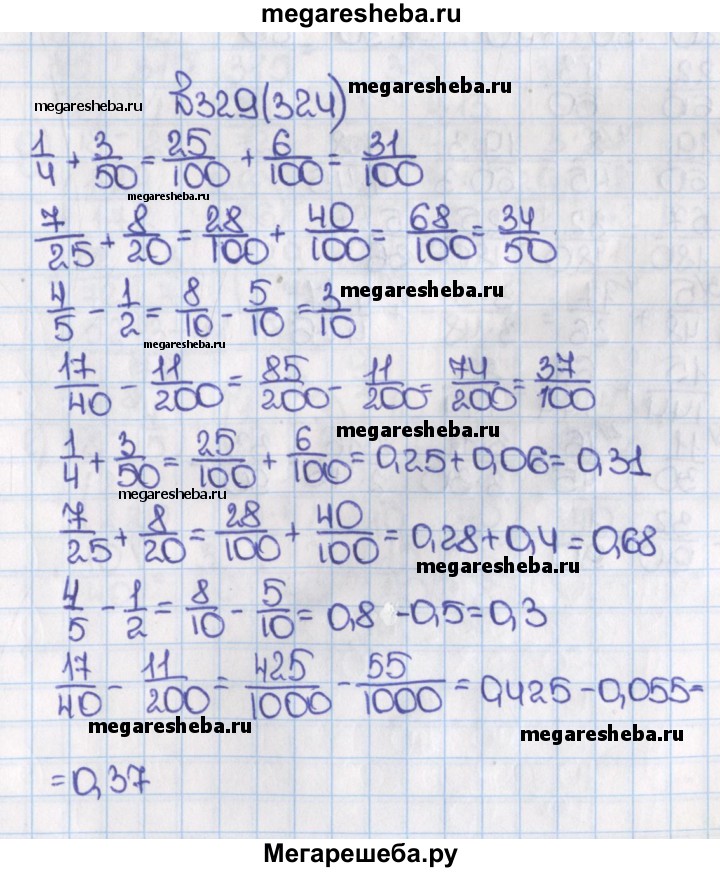 megaresheba.ru
№329(324) megaresheba.ru
megaresheba.ru
1/4 + 3/50 = 25/100 + 6/100 = 31/100
megaresheba.ru
7/25 + 8/20 = 28/100 + 40/100 = 68/100 = 34/50
4/5 - 1/2 = 8/10 - 5/10 = 3/10 megaresheba.ru
megaresheba.ru
17/40 - 11/200 = 85/200 - 11/200 = 74/200 = 37/100
megaresheba.ru
1/4 + 3/50 = 25/100 + 6/100 = 0,25 + 0,06 = 0,31
megaresheba.ru
7/25 + 8/20 = 28/100 + 40/100 = 0,28 + 0,4 = 0,68
megaresheba.ru
4/5 - 1/2 = 8/10 - 5/10 = 0,8 - 0,5 = 0,3
17/40 - 11/200 = 425/1000 - 55/1000 = 0,425 - 0,055 =
megaresheba.ru
megaresheba.ru
= 0,37
Мегарешеба.ру